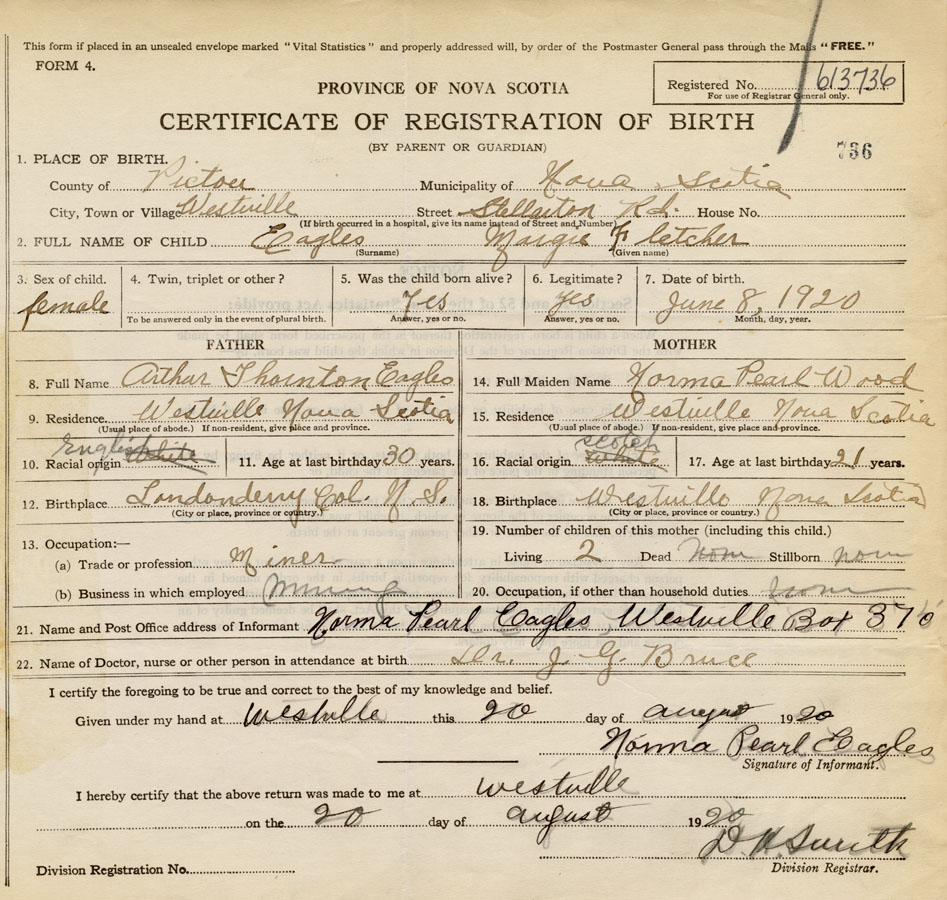 This form if placed in an unsealed envelope marked "Vital Statistics" and properly addressed will, by order of the Postmaster General pass through the Mails "FREE."
FORM 4.
PROVINCE OF NOVA SCOTIA
Registered No. 613736
For use of Registrar General only.
CERTIFICATE OF REGISTRATION OF BIRTH
(BY PARENT OR GUARDIAN)
736
1. PLACE OF BIRTH.
County of Pictou Municipality of Nova Scotia
City, Town or Village Westville Street Stellarton Rd. House No.
(If birth occurred in a hospital, give its name instead of Street and Number)
2. FULL NAME OF CHILD Eagles Margie Fletcher
(Surname) (Given name)
3. Sex of child. 4. Twin, triplet or other? 5. Was the child born alive? 6. Legitimate? 7. Date of birth.
female Yes yes June 8, 1920
To be answered only in the event of plural birth. Answer, yes or no. Answer, yes or no. Month, day, year.
FATHER MOTHER
8. Full Name Arthur Thornton Eagles 14. Full Maiden Name Norma Pearl Wood
9. Residence. Westville Nova Scotia 15. Residence Westville Nova Scotia
(Usual place of abode.) If non-resident, give place and province. (Usual place of abode.) If non-resident, give place and province.
English scotch
10. Racial origin White 11. Age at last birthday 30 years. 16. Racial origin White 17. Age at last birthday 21 years.
12. Birthplace Londonderry Col. N.S. 18. Birthplace Westville Nova Scotia
(City or place, province or country.) (City or place, province or country.)
13. Occupation:— 19. Number of children of this mother (including this child.)
(a) Trade or profession Miner Living 2 Dead None Stillborn none
(b) Business in which employed Mining 20. Occupation, if other than household duties none
21. Name and Post Office address of Informant Norma Pearl Eagles, Westville Box 376
22. Name of Doctor, nurse or other person in attendance at birth Dr. J. G. Bruce
I certify the foregoing to be true and correct to the best of my knowledge and belief.
Given under my hand at Westville this 20 day of august 1920
Norma Pearl Eagles
Signature of Informant.
I hereby certify that the above return was made to me at Westville
on the 20 day of august 1920
D H Smith
Division Registration No. Division Registrar.